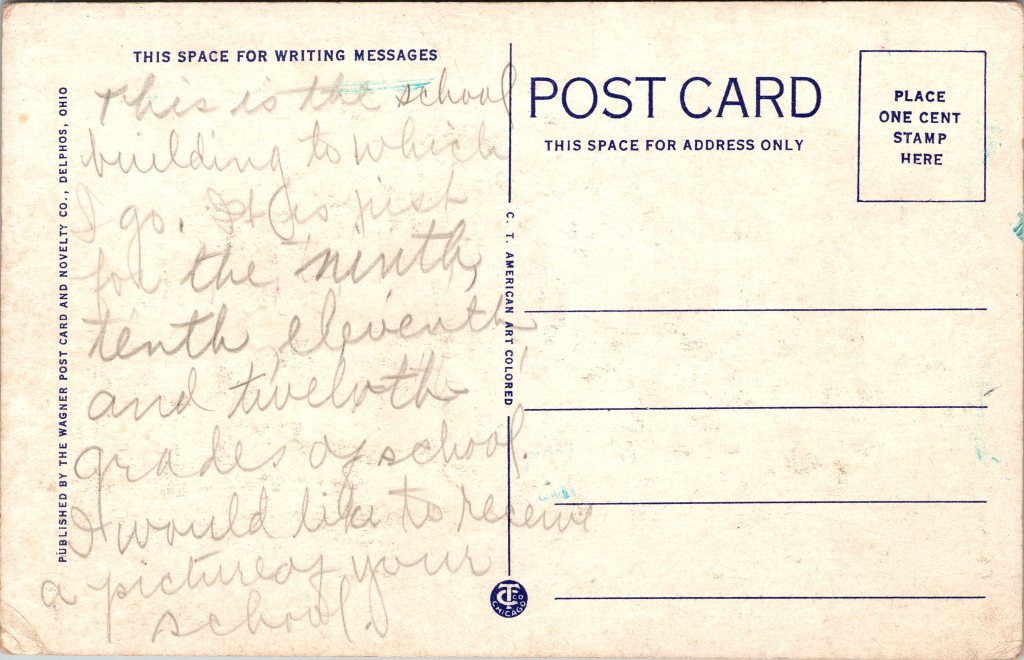 THIS SPACE FOR WRITING MESSAGES
This is the school
building to which
I go. It is just
for the ninth,
tenth, eleventh,
and twelvth
grades of school.
I would like to receive
a picture of your
school.
PUBLISHED BY THE WAGNER POST CARD AND NOVELTY CO., DELPHOS, OHIO
C. T. AMERICAN ART COLORED
POST CARD
THIS SPACE FOR ADDRESS ONLY
PLACE
ONE CENT
STAMP
HERE
CT CO
CHICAGO